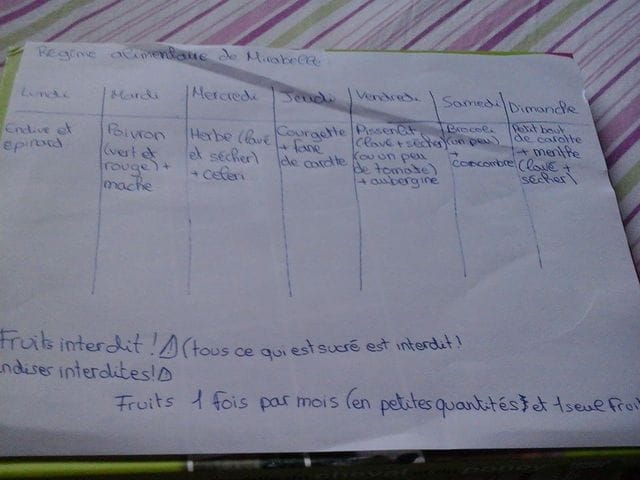 Regime alimentaire de Mirabelle
Lundi Mardi Mercredi Jeudi Vendredi Samedi Dimanche
Endive et
epinard
Poivron
(vert et
rouge) +
mache
Herbe (lavé
et sécher)
+ celeri
Courgette
+ fane
de carotte
Pissenlit
(lavé + sécher)
(ou un peu
de tomate)
+ aubergine
Brocoli
(un peu)
+
Concombre
Petit bout
de carotte
+ menthe
(lavé +
sécher)
Fruits interdit! ⚠ (tous ce qui est sucré est interdit!
ndises interdites! ⚠
Fruits 1 fois par mois (en petites quantités) et 1 seul fruit